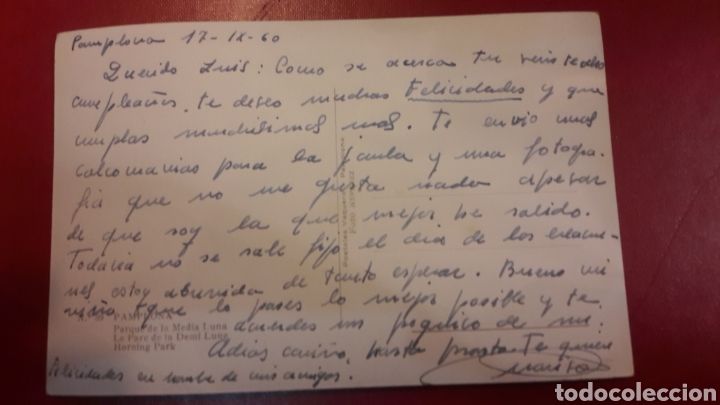 Pamplona 17-IX-60
Querido Luis: Como se acerca tu
cumpleaños, te deseo muchas Felicidades y que
cumplas muchisimos mas. Te envio unas
calcomanias para la y una fotogra-
fia que no me gusta nada apesar
de que soy la que mejor he salido.
Todavia no se sabe fijo el dia de los exame-
nes estoy aburrida de tanto esperar. Bueno mi
niño, que lo pases lo mejor posible y te
acuerdes un poquito de mi.
Adios cariño, hasta pronto. Te quiere
Felicidades en nombre de mis amigos.
PAMPLONA
Parque de la Media Luna
Le Parc de la Demi Lune
Horning Park
todocoleccion.net